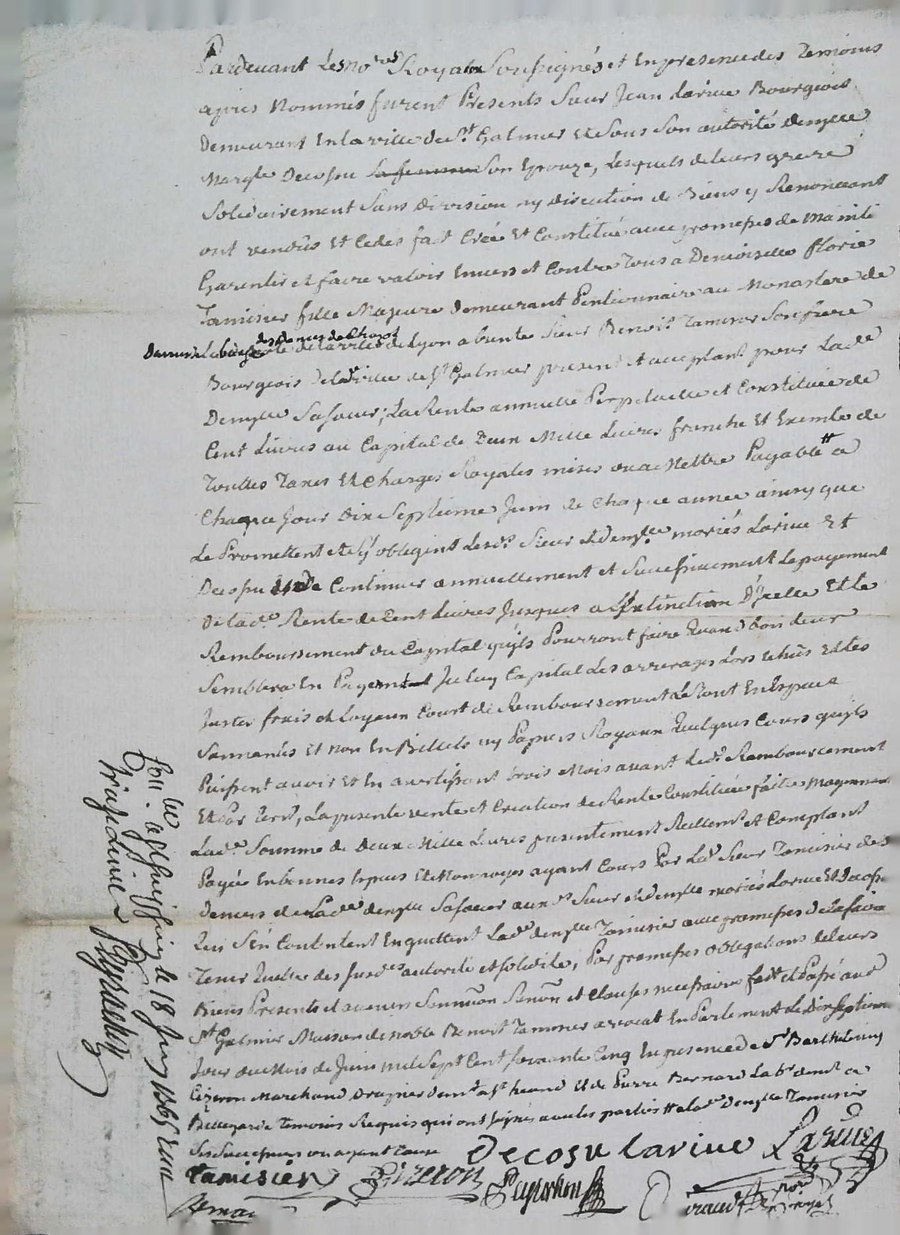 Pardevant Les no.res Royaux Soussignés et En presence des Temoins
apres Nommés furent Presents Sieur Jean Larive Bourgeois
Demeurant En la ville de St Galmier Et Sous Son autorité demlle
Decosu Son Epouze, Lesquels de leurs gré
Solidairement Sans Division ny discution de Biens y Renonceant
ont vendûs Et Cedes fait Créé Et Constitué avec promesses de Maintenir
Garentir et faire valoir Envers et Contre Tous a Demoiselle florie
Tamisier fille Majeure Demeurant Pentionnaire au Monastere de
des Dames de Chazot
de Lyon Sieur Benoit Tamisier Son frere
Bourgeois De la ville de St Galmier present Et acceptant pour La de
Demlle Sa Soeur, La Rente annuelle Perpetuelle et Constituée de
Cent Livres au Capital de Deux Mille Livres franche Et Exemte de
Touttes Taxes Et Charges Royales mises ou a Mettre Payable a
Chaque Jour Dix Septieme Juin de Chaque année ainsy que
Le Promettent et Sy obligent Lesd. Sieur et Demlle mariés Larive Et
Decosu de Continuer annuellement et Succesivement Le payement
De lad. Rente de Cent Livres Jusques a L'Extinction D'ycelle Et Le
Remboursement du Capital quils Pourront faire Quand bon Leur
Semblera En Payant Capital Les arrerages Lors Echûs Et Les
Justes frais et Loyaux Court de Remboursement Le Tout En Espece
Sonnantes Et non En Billets ny Papiers Royaux Quelques Cours quils
Puissent avoir Et En avertissant trois Mois avant Led. Remboursement
Et Par Ecrit, La presente vente et Creation de Rente Constituée faite Moyennant
Lad. Somme de Deux Mille Livres presentement Reellemt et Comptant
Payée En bonnes Especes Et Monnoyes ayant Cours Par Led. Sieur Tamisier des
Deniers de Lad. demlle Sa Soeur auxd. Sieur et demlle mariés Larive Et Decosu
Qui S'en Contentent En quittent Lad. demlle Tamisier avec promesses de La faire
Tenir Quitte des Susd. autorité et solidité, Par promesses obligations de Leurs
Biens Presents et avenirs et Clauses necessaires fait et Passé aud
St Galmier Maison de noble Benoit Tamisier avocat En Parlement Le Dix Septieme
Jour du Mois de Juin mil Sept Cent Soixante Cinq En presence de Sr Barthelemy
Cizeron Marchand Et de Pierre Bernard a
Bellegarde Temoins Requis qui ont Signés avec les parties et lad. Demlle Tamisier
Decosu Larive Larive
tamisier Cizeron Peyrichon
Bernard Giraud nore royal
le 18 Juin 1765
Peyrichon